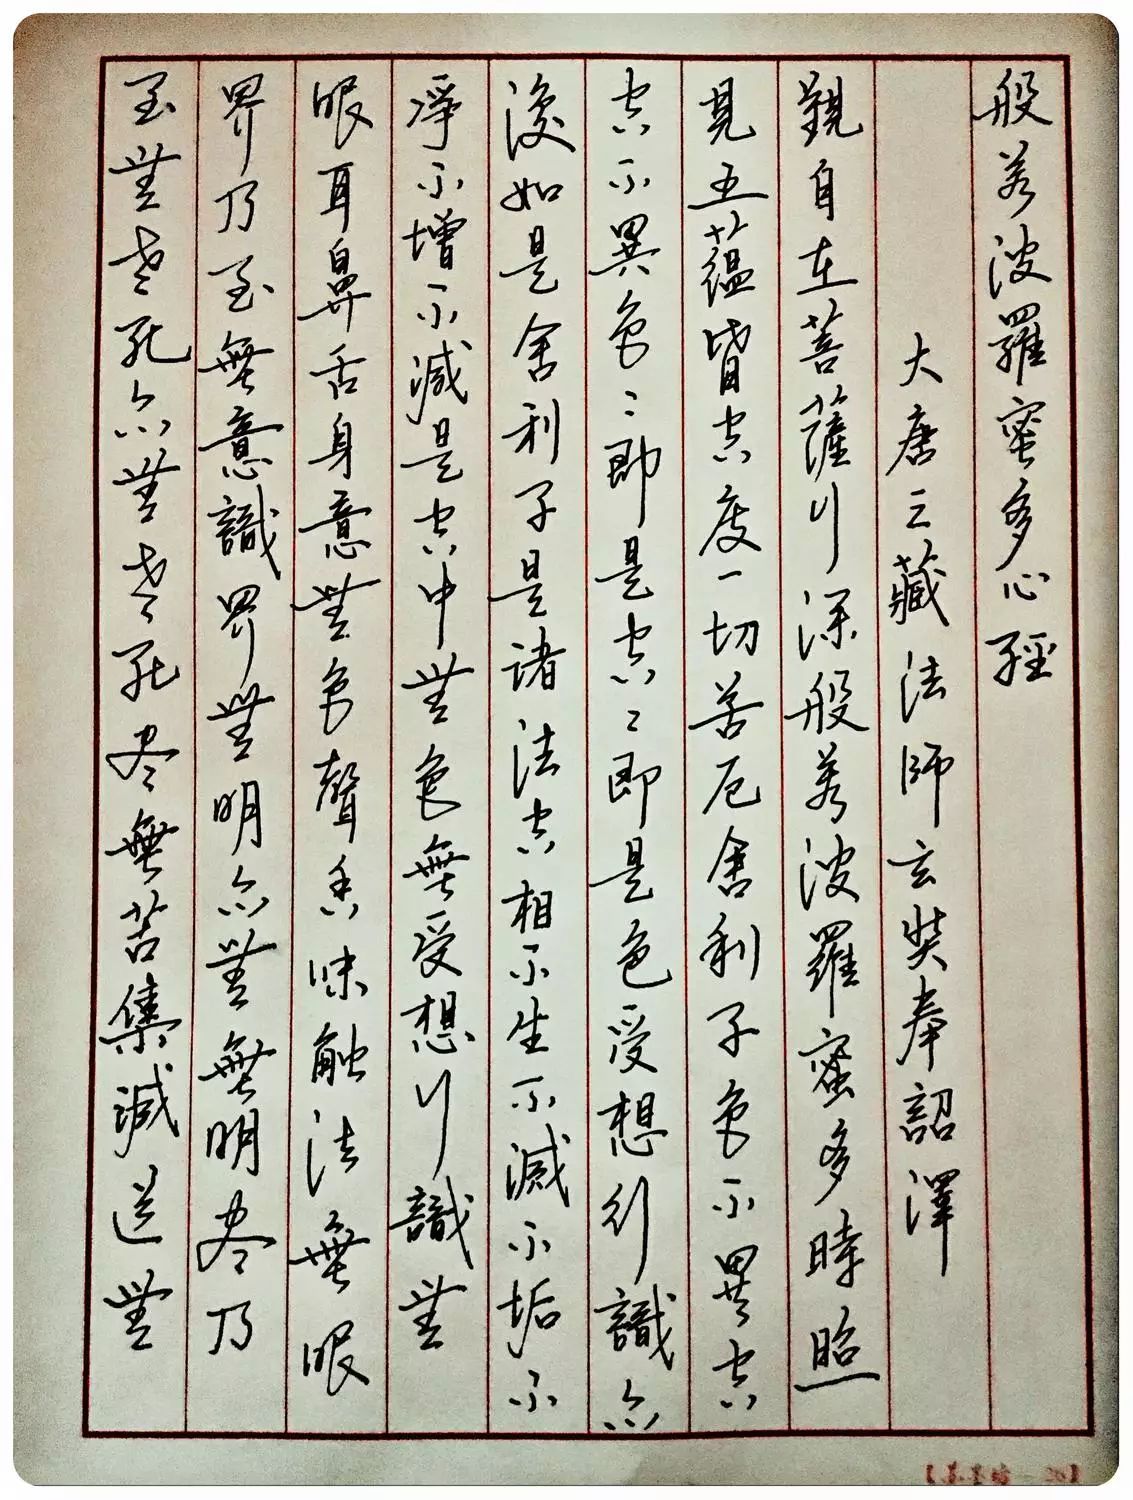 般若波羅蜜多心經
大唐三藏法師玄奘奉詔澤
觀自在菩薩行深般若波羅蜜多時照
見五蘊皆空度一切苦厄舍利子色不異空
空不異色〻即是空〻即是色受想行識亦
復如是舍利子是诸法空相不生不滅不垢不
淨不增不減是空中無色無受想行識無
眼耳鼻舌身意無色聲香味触法無眼
界乃至無意識界無明亦無無明尽乃
至無老死亦無老死尽無苦集滅道無